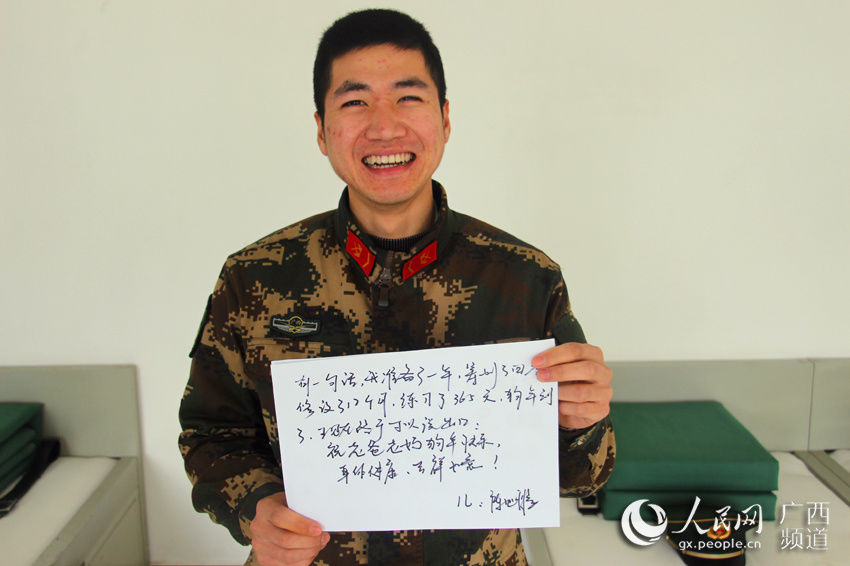 有一句话,我准备了一年,筹划了四
修改了12个月,练习了365天,狗年到
了,我终于可以说出口:
祝老爸老妈狗年快乐,
身体健康、吉祥如意!
儿:陈
人民网
gx.people.cn
广西
频道